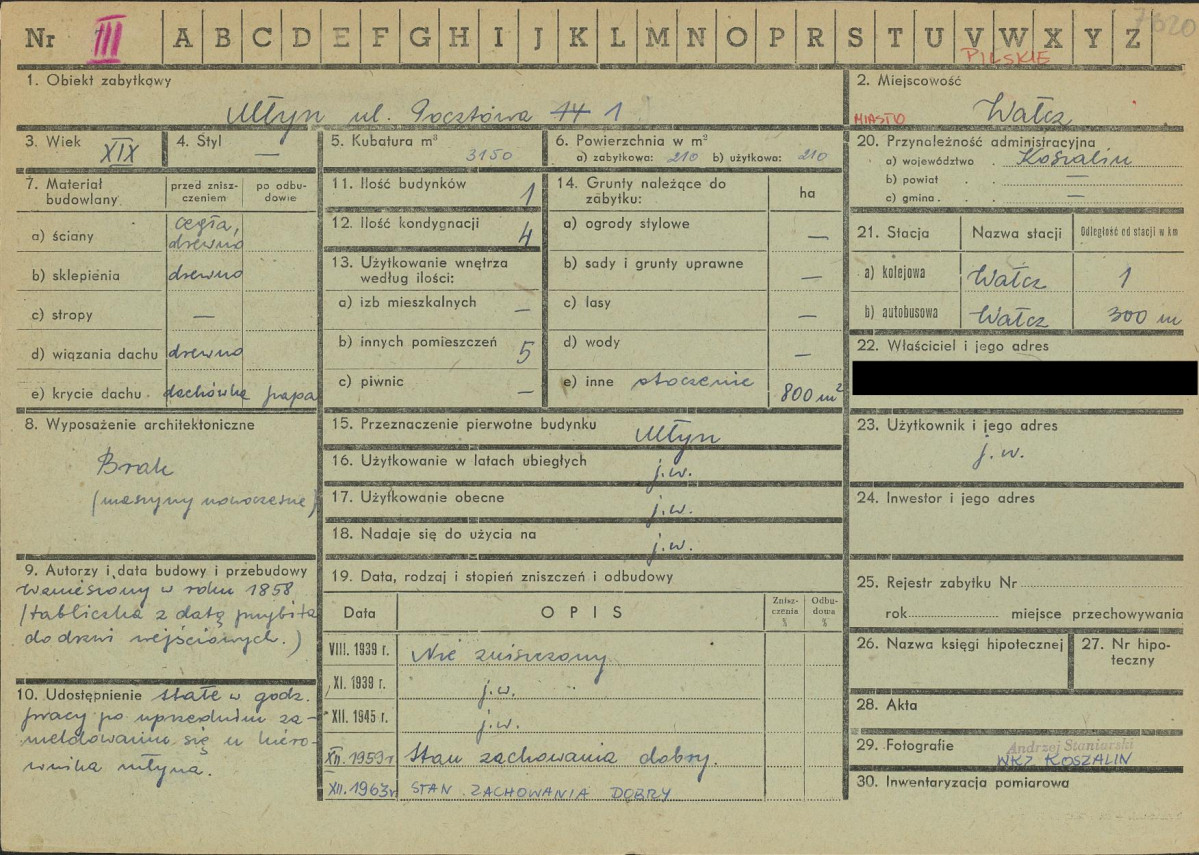 Nr III A B C D E F G H I J K L M N O P R S T U V W X Y Z 7620
PILSKIE
1. Obiekt zabytkowy
Młyn ul. Pocztowa 14 1
2. Miejscowość
MIASTO Wałcz
3. Wiek XIX
4. Styl —
5. Kubatura m³ 3150
6. Powierzchnia w m²
a) zabytkowa: 210 b) użytkowa: 210
7. Materiał budowlany
przed zniszczeniem
po odbudowie
a) ściany cegła, drewno
b) sklepienia drewno
c) stropy —
d) wiązania dachu drewno
e) krycie dachu dachówka papa
8. Wyposażenie architektoniczne
Brak
(maszyny nowoczesne)
9. Autorzy i data budowy i przebudowy
Wzniesiony w roku 1858
/tabliczka z datą przybita
do drzwi wejściowych.)
10. Udostępnienie stałe w godz.
pracy po uprzednim za-
meldowaniu się u kiero-
wnika młyna.
11. Ilość budynków 1
12. Ilość kondygnacji 4
13. Użytkowanie wnętrza
według ilości:
a) izb mieszkalnych —
b) innych pomieszczeń 5
c) piwnic —
14. Grunty należące do
zabytku:
ha
a) ogrody stylowe —
b) sady i grunty uprawne —
c) lasy —
d) wody —
e) inne otoczenie 800 m²
15. Przeznaczenie pierwotne budynku Młyn
16. Użytkowanie w latach ubiegłych j.w.
17. Użytkowanie obecne j.w.
18. Nadaje się do użycia na j.w.
19. Data, rodzaj i stopień zniszczeń i odbudowy
Data OPIS Zniszczenia % Odbudowa %
VIII. 1939 r. Nie zniszczony
XI. 1939 r. j.w.
XII. 1945 r. j.w.
XII. 1959 r Stan zachowania dobry.
XII. 1963 r STAN ZACHOWANIA DOBRY
20. Przynależność administracyjna
a) województwo Koszalin
b) powiat . . —
c) gmina . . —
21. Stacja Nazwa stacji Odległość od stacji w km
a) kolejowa Wałcz 1
b) autobusowa Wałcz 300 m
22. Właściciel i jego adres
23. Użytkownik i jego adres
j.w.
24. Inwestor i jego adres
25. Rejestr zabytku Nr
rok miejsce przechowywania
26. Nazwa księgi hipotecznej
27. Nr hipoteczny
28. Akta
29. Fotografie Andrzej Staniarski
WKZ KOSZALIN
30. Inwentaryzacja pomiarowa